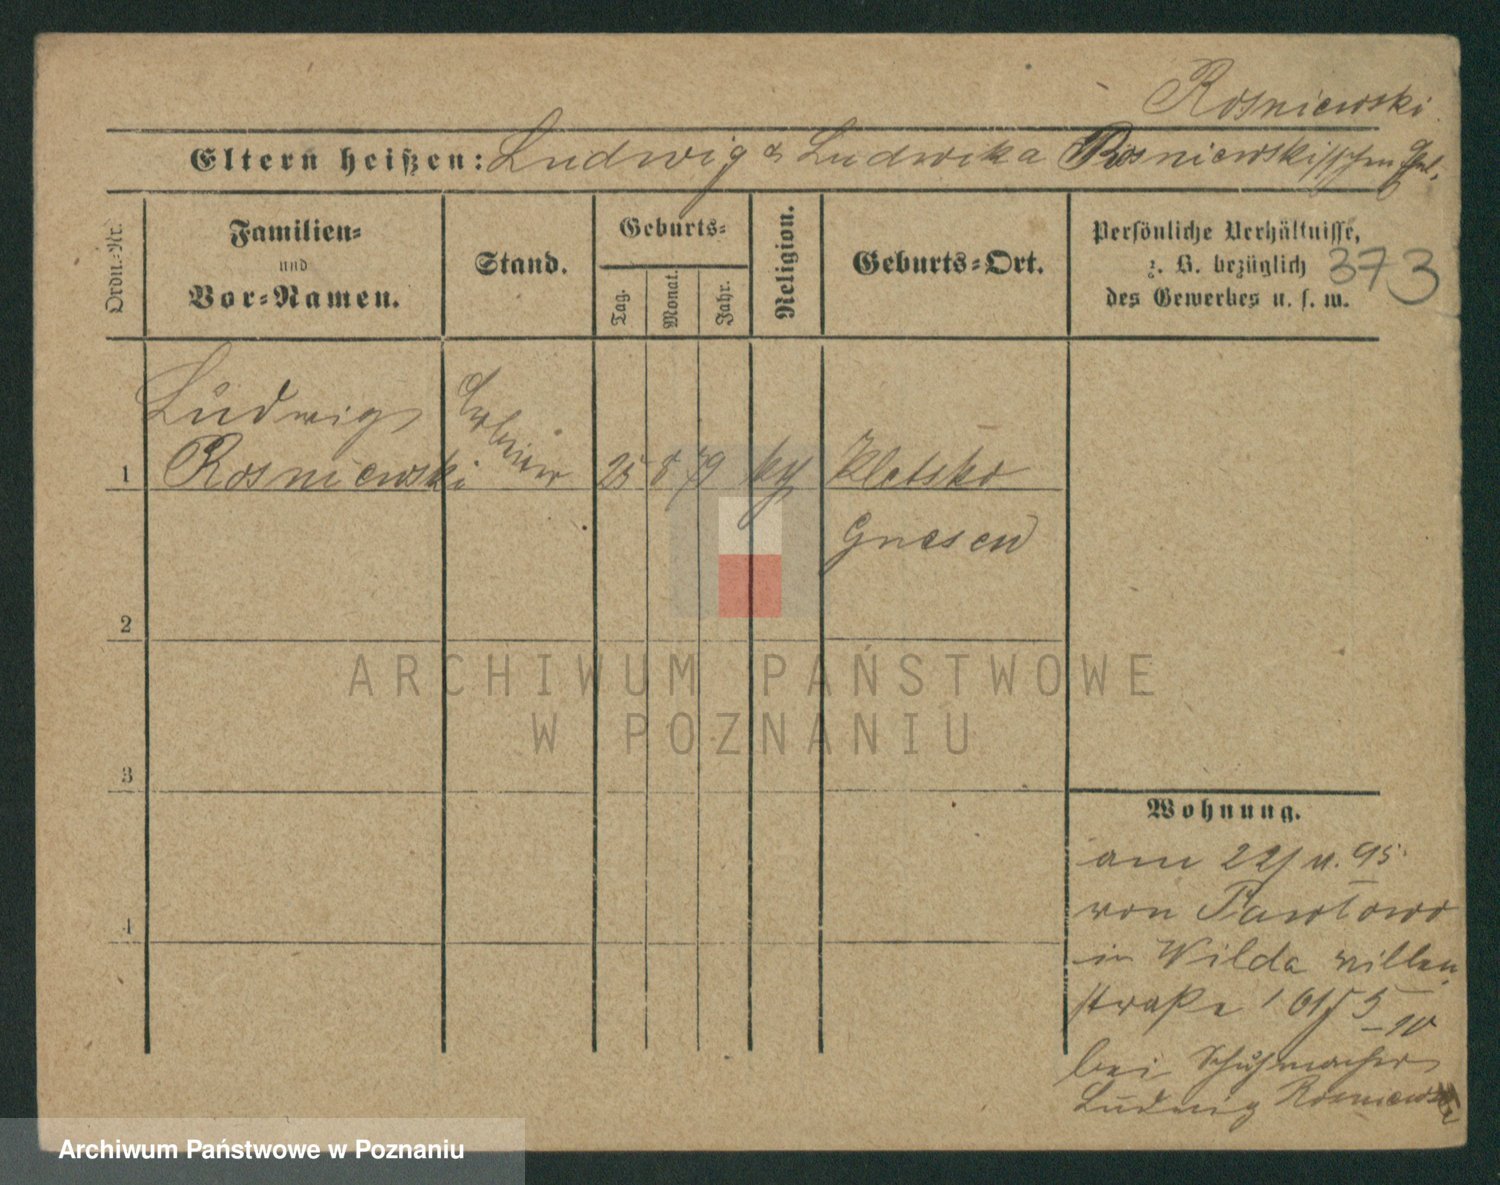 Rosniewski
Eltern heißen: Ludwig & Ludwika Rosniewski'schen
Ordn.-Nr.
Familien-
und
Vor-Namen.
Stand.
Geburts-
Tag.
Monat.
Jahr.
Religion.
Geburts-Ort.
Persönliche Verhältnisse,
z. B. bezüglich
des Gewerbes u. s. w.
373
Ludwig
1 Rosniewski 25 8 79 kth Kletsko
Gnesen
2
3
4
Wohnung.
am 22/11. 95
von Pawlowo
in Wilda Villen
straße
bei Schuhmacher
Ludwig Rosniewski
ARCHIWUM PAŃSTWOWE
W POZNANIU
Archiwum Państwowe w Poznaniu